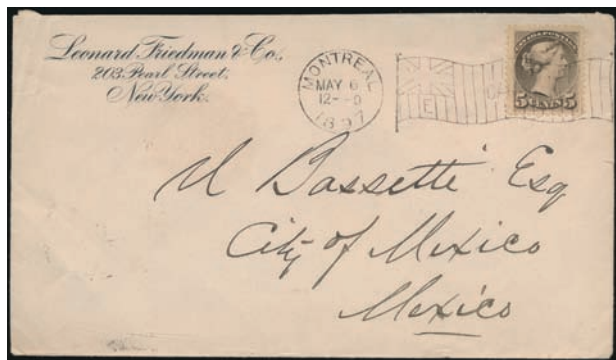 Leonard Friedman & Co.,
203 Pearl Street,
New York.
MONTREAL
MAY 6
12-0
1897
E
CA
5 CENTS 5
Bassette Esq
City of Mexico
Mexico